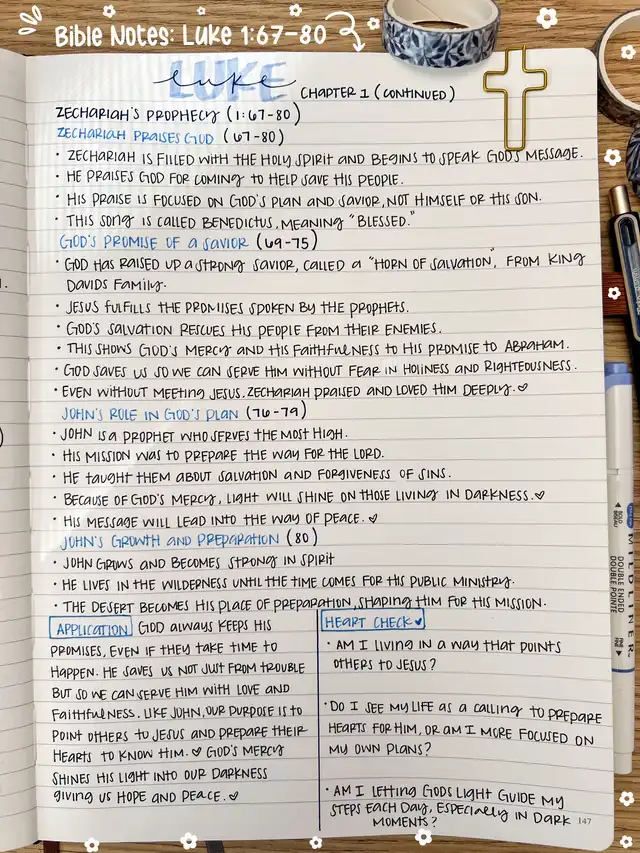 Bible Notes: Luke 1:67-80
LUKE
luke
CHAPTER 1 (CONTINUED)
ZECHARIAH'S PROPHECY (1:67-80)
ZECHARIAH PRAISES GOD (67-80)
• ZECHARIAH IS FILLED WITH THE HOLY SPIRIT AND BEGINS TO SPEAK GOD'S MESSAGE.
• HE PRAISES GOD FOR COMING TO HELP SAVE HIS PEOPLE.
• HIS PRAISE IS FOCUSED ON GOD'S PLAN AND SAVIOR, NOT HIMSELF OR HIS SON.
• THIS SONG IS CALLED BENEDICTUS, MEANING "BLESSED."
GOD'S PROMISE OF A SAVIOR (69-75)
• GOD HAS RAISED UP A STRONG SAVIOR, CALLED A "HORN OF SALVATION", FROM KING
DAVIDS FAMILY.
• JESUS FULFILLS THE PROMISES SPOKEN BY THE PROPHETS.
• GOD'S SALVATION RESCUES HIS PEOPLE FROM THEIR ENEMIES.
• THIS SHOWS GOD'S MERCY AND HIS FAITHFULNESS TO HIS PROMISE TO ABRAHAM.
• GOD SAVES US SO WE CAN SERVE HIM WITHOUT FEAR IN HOLINESS AND RIGHTEOUSNESS.
• EVEN WITHOUT MEETING JESUS. ZECHARIAH PRAISED AND LOVED HIM DEEPLY. ♡
JOHN'S ROLE IN GOD'S PLAN (76-79)
• JOHN IS A PROPHET WHO SERVES THE MOST HIGH.
• HIS MISSION WAS TO PREPARE THE WAY FOR THE LORD.
• HE TAUGHT THEM ABOUT SALVATION AND FORGIVENESS OF SINS.
• BECAUSE OF GOD'S MERCY, LIGHT WILL SHINE ON THOSE LIVING IN DARKNESS. ♡
• HIS MESSAGE WILL LEAD INTO THE WAY OF PEACE. ♡
JOHN'S GROWTH AND PREPARATION (80)
• JOHN GROWS AND BECOMES STRONG IN SPIRIT
• HE LIVES IN THE WILDERNESS UNTIL THE TIME COMES FOR HIS PUBLIC MINISTRY.
• THE DESERT BECOMES HIS PLACE OF PREPARATION, SHAPING HIM FOR HIS MISSION.
APPLICATION GOD ALWAYS KEEPS HIS
PROMISES, EVEN IF THEY TAKE TIME TO
HAPPEN. HE SAVES US NOT JUST FROM TROUBLE
BUT SO WE CAN SERVE HIM WITH LOVE AND
FAITHFULNESS. LIKE JOHN, OUR PURPOSE IS TO
POINT OTHERS TO JESUS AND PREPARE THEIR
HEARTS TO KNOW HIM. ♡ GOD'S MERCY
SHINES HIS LIGHT INTO OUR DARKNESS
GIVING US HOPE AND PEACE. ♡
HEART CHECK ♥
• AM I LIVING IN A WAY THAT POINTS
OTHERS TO JESUS?
• DO I SEE MY LIFE AS A CALLING TO PREPARE
HEARTS FOR HIM, OR AM I MORE FOCUSED ON
MY OWN PLANS?
• AM I LETTING GODS LIGHT GUIDE MY
STEPS EACH DAY, ESPECIALLY IN DARK
MOMENTS?
147
MILDLINER
DOUBLE ENDED
DOUBLE POINTE